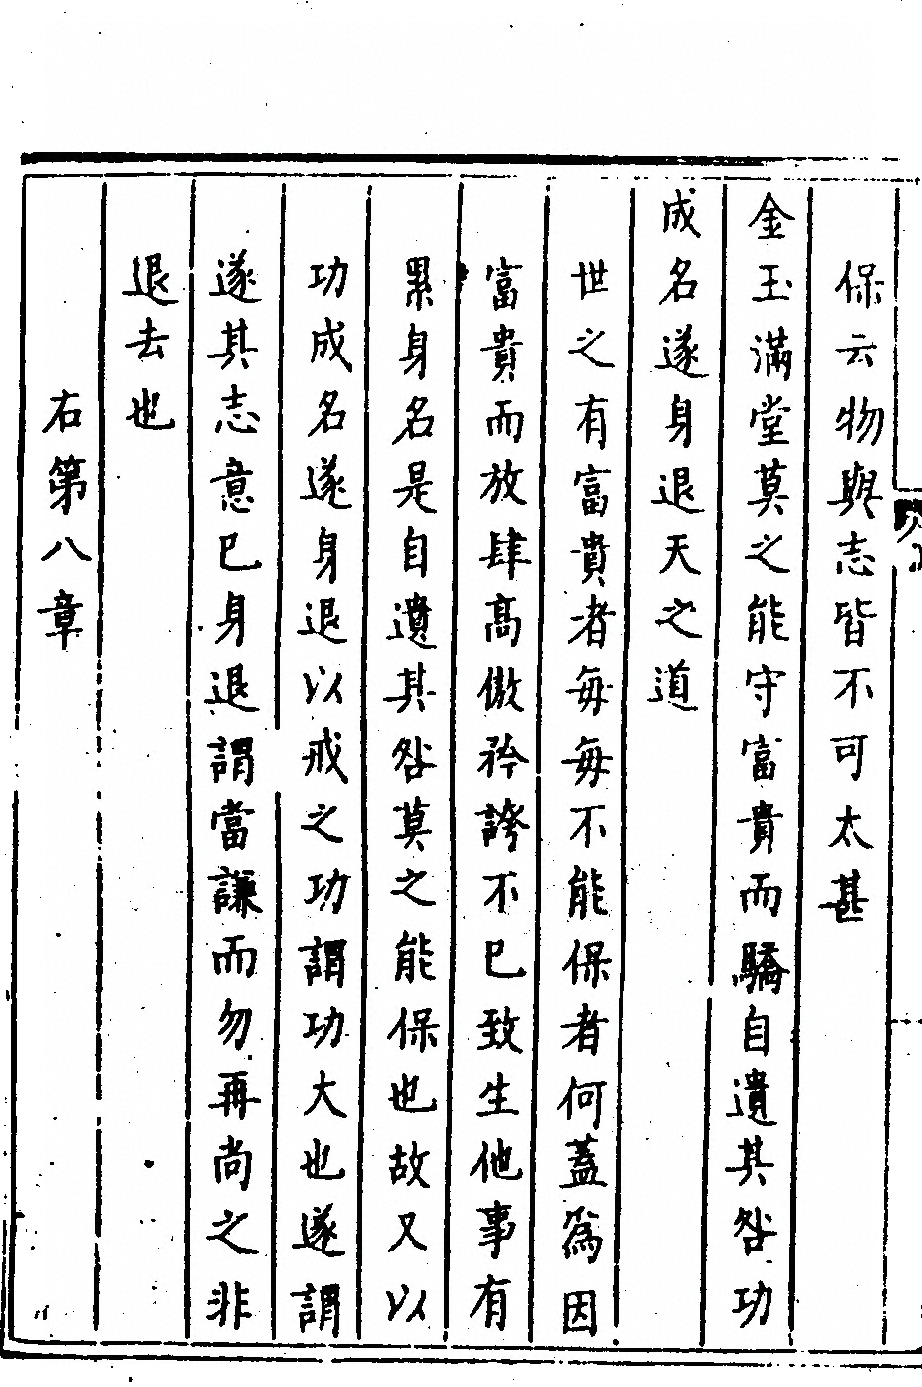 保云物與志皆不可太甚
金玉滿堂莫之能守富貴而驕自遺其咎功
成名遂身退天之道
世之有富貴者每每不能保者何蓋爲因
富貴而放肆高傲矜誇不已致生他事有
累身名是自遺其咎莫之能保也故又以
功成名遂身退以戒之功謂功大也遂謂
遂其志意已身退謂當謙而勿再尚之非
退去也
右第八章